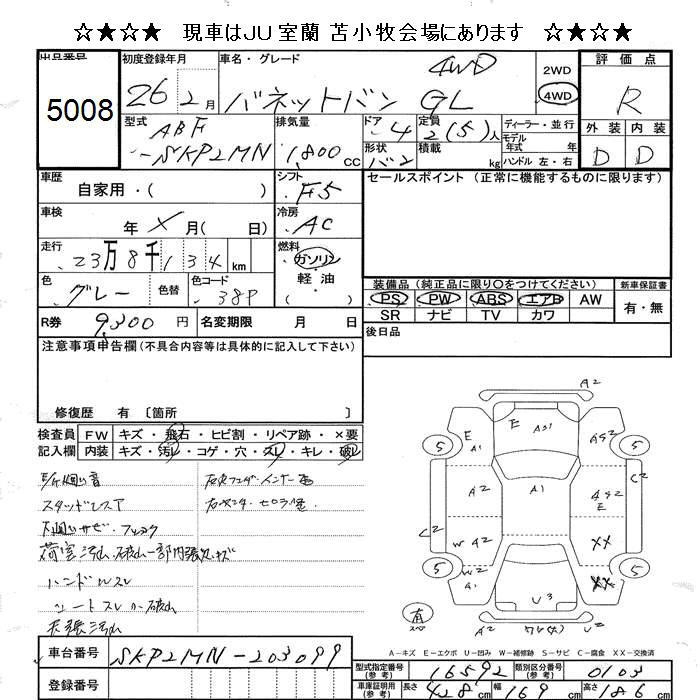 ☆★☆★ 現車はJU室蘭 苫小牧会場にあります ☆★☆★
出品番号 初度登録年月 車名・グレード 評価点
5008 26 2月 バネットバン GL 4WD 2WD 4WD R
型式 排気量 ドア 定員 ディーラー・並行 外装 内装
ABF-SKP2MN 1,800 CC 4 2(5)人 モデル 年式 年 D D
形状 バン 積載 kg ハンドル 左・右
車歴 シフト セールスポイント (正常に機能するものに限ります)
自家用・( ) F5
車検 冷房
年 X 月( 日) AC
走行 燃料
23万8千134 km ガソリン
色 色替 色コード 軽油
グレー 38P ( )
装備品 (純正品に限り○をつけてください) 新車保証書
PS PW ABS エアB AW 有・無
SR ナビ TV カワ
R券 9,300 円 名変期限 月 日
後日品
注意事項申告欄(不具合内容等は具体的に記入して下さい)
修復歴 有 〔箇所 〕
検査員 FW キズ・飛石・ヒビ割・リペア跡・×要
記入欄 内装 キズ・汚レ・コゲ・穴・スレ・キレ・破レ
スタッドレスア
下廻りサビ・フショク
ハンドルスレ
シートスレ 破れ
天張汚れ
A2
E A21
5 E A1 A52 5
A2 A1 4S2 E C2
C2 W42 XX
5 W2 A1 XX 5
U3
有 スペア A2 C2
A−キズ E−エクボ U−凹み W−補修跡 S−サビ C−腐食 XX−交換済
車台番号 SKP2MN-203099
登録番号
型式指定番号(参考) 16592 類別区分番号(参考) 0103
車庫証明用(参考) 長さ 428 cm 幅 169 cm 高さ 186 cm